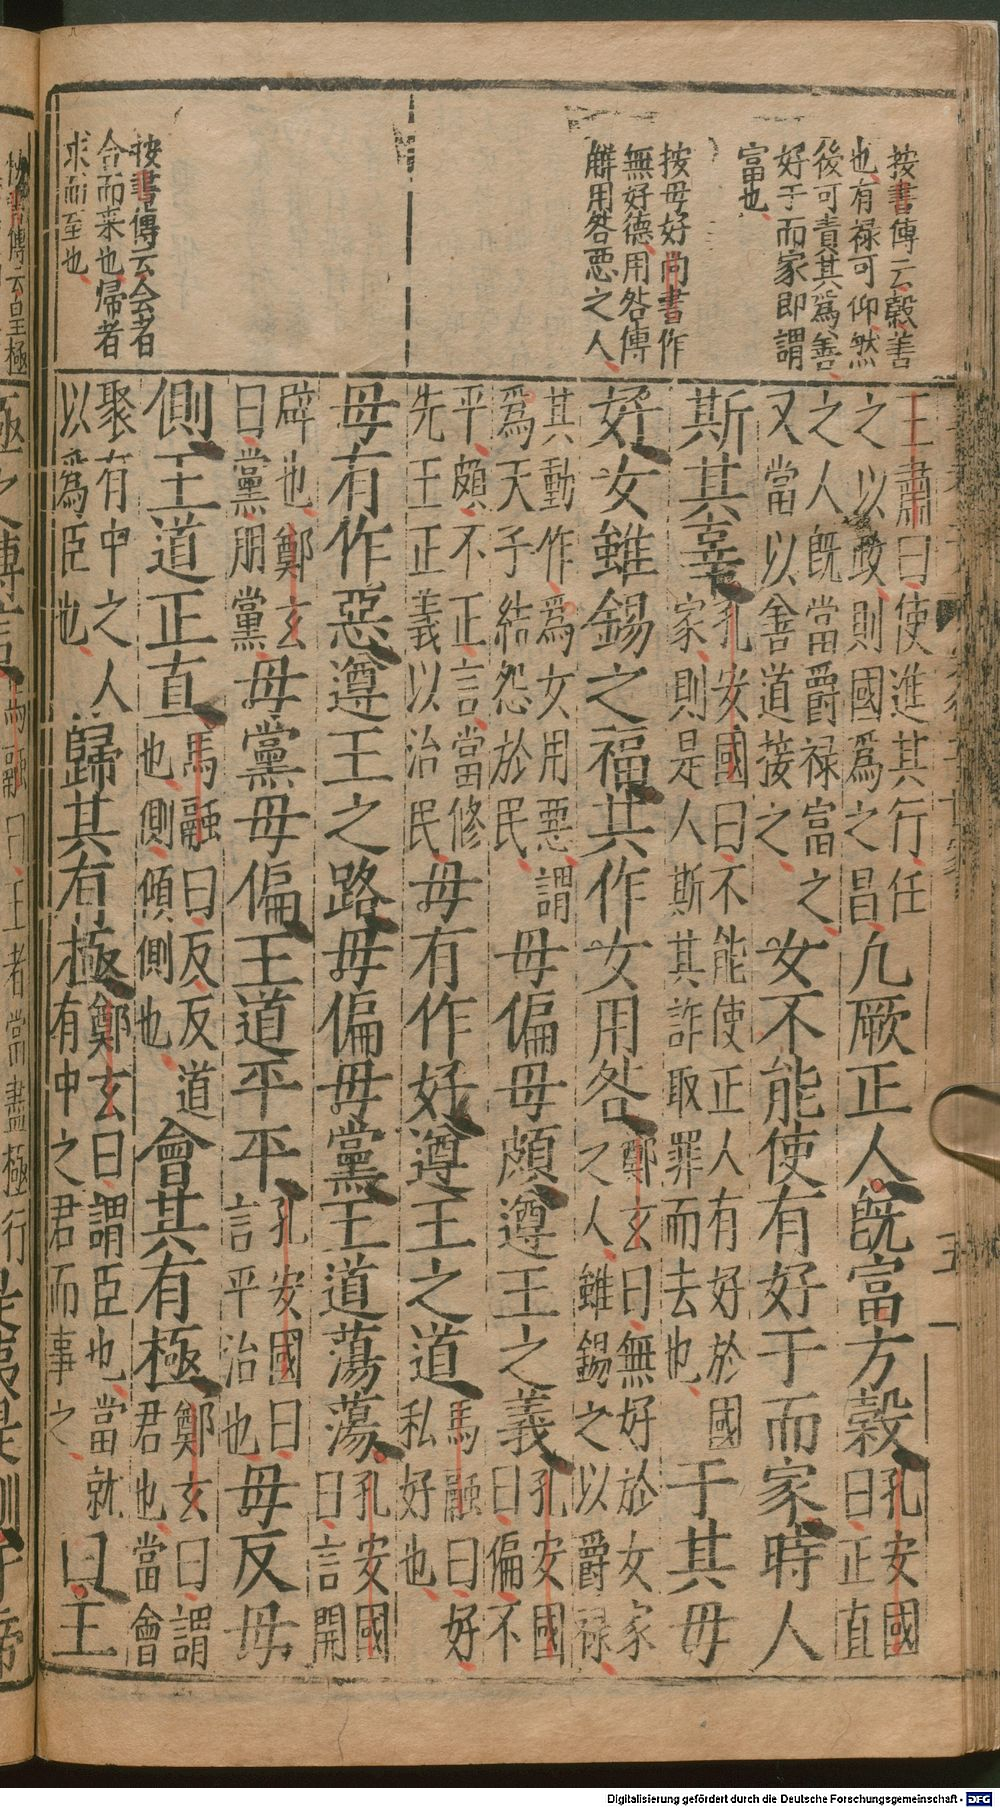 按書傳云糓善
也有禄可仰然
後可責其爲善
好于而家即謂
富也
按毋好尚書作
無好德用咎傳
觧用咎悪之人
按書傳云会者
合而来也帰者
求而至也
王肅曰使進其行任
之以政則國爲之昌
凢厥正人既富方糓
孔安國
曰正直
之人既當爵禄富之
又當以善道接之
女不能使有好于而家時人
斯其辜
孔安國曰不能使正人有好於國
家則是人斯其詐取罪而去也
于其毋
好女雖錫之福其作女用咎
鄭玄曰無好於女家
之人雖錫之以爵禄
其動作爲女用悪謂
爲天子結怨於民
毋偏毋頗遵王之義
孔安國
曰偏不
平頗不正言當修
先王正義以治民
毋有作好遵王之道
馬融曰好
私好也
毋有作惡遵王之路毋偏毋黨王道蕩蕩
孔安國
曰言開
辟也鄭玄
曰黨朋黨
毋黨毋偏王道平平
孔安國曰
言平治也
毋反毋
側王道正直
馬融曰反反道
也側傾側也
會其有極
鄭玄曰謂
君也當會
聚有中之人
以爲臣也
歸其有極
鄭玄曰謂臣也當就
有中之君而事之
曰王
書傳云皇極
曰王者當盡極行
Digitalisierung gefördert durch die Deutsche Forschungsgemeinschaft - DFG